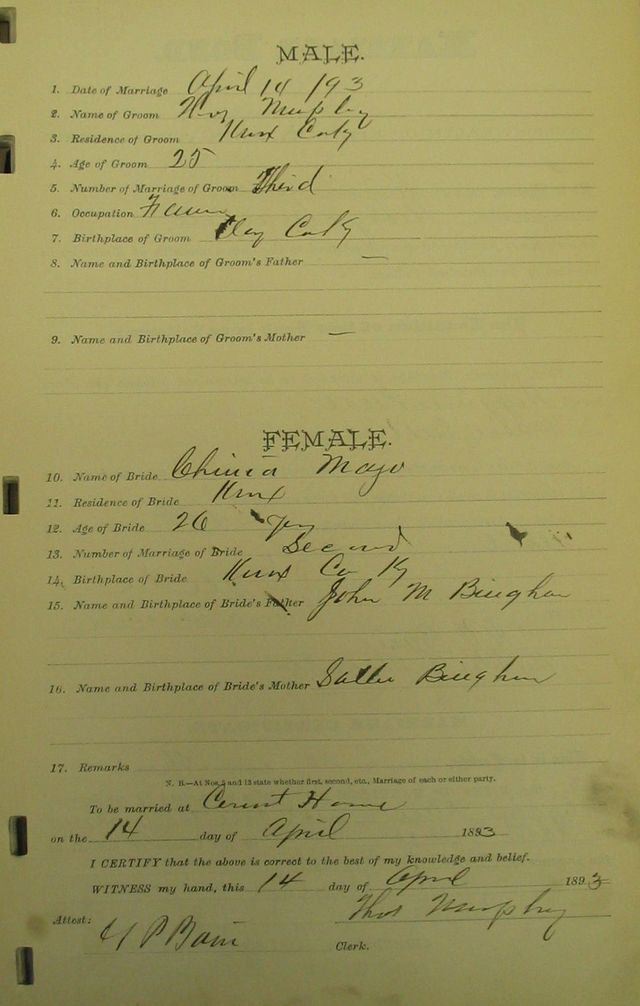 MALE.
1. Date of Marriage April 14 193
2. Name of Groom Murphy
3. Residence of Groom Knox Co Ky
4. Age of Groom 25
5. Number of Marriage of Groom Third
6. Occupation Farmer
7. Birthplace of Groom Clay Co Ky
8. Name and Birthplace of Groom's Father —
9. Name and Birthplace of Groom's Mother —
FEMALE.
10. Name of Bride Mayo
11. Residence of Bride Knox
12. Age of Bride 26 yrs
13. Number of Marriage of Bride Second
14. Birthplace of Bride Knox Co Ky
15. Name and Birthplace of Bride's Father John M Bingham
16. Name and Birthplace of Bride's Mother Sallie Bingham
17. Remarks
N. B.—At Nos. 5 and 13 state whether first, second, etc., Marriage of each or either party.
To be married at Home
on the 14 day of April 1893
I CERTIFY that the above is correct to the best of my knowledge and belief.
WITNESS my hand, this 14 day of April 1893
Thos Murphy
Attest:
Clerk.